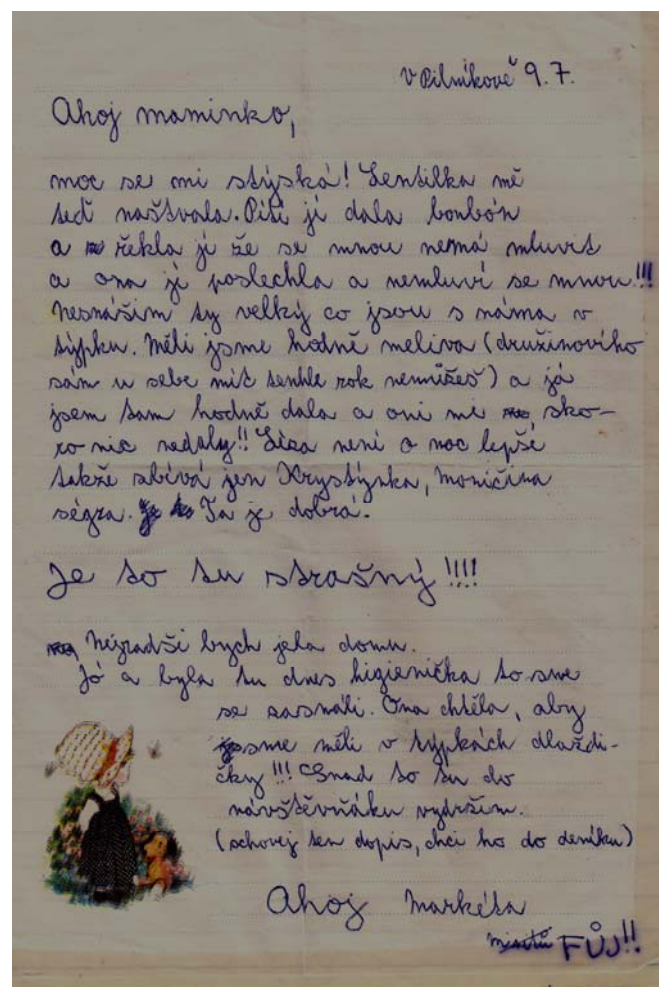 v Pilníkově 9.7.
Ahoj maminko,
moc se mi stýská! Lentilka mě
teď naštvala. Piti jí dala bonbón
a řekla jí že se mnou nemá mluvit
a ona jí poslechla a nemluví se mnou!!!
Nesnáším ty velký co jsou s náma v
týpku. Měli jsme hodně meliva (družinovího
sám u sebe mít tenhle rok nemůžeš) a já
jsem tam hodně dala a oni mi sko-
ro nic nedaly!! Líza není o moc lepší
takže zbívá jen Krystýnka, Moničina
ségra. Ta je dobrá.
Je to tu strašný!!!!
Nejradši bych jela domu.
Jó a byla tu dnes higienička to sme
se zasmáli. Ona chtěla, aby
jsme měli v týpkách dlaždi-
čky!!! Snad to tu do
návštěvňáku vydržim.
(schovej ten dopis, chci ho do deníku)
Ahoj Markéta
FŮJ!!